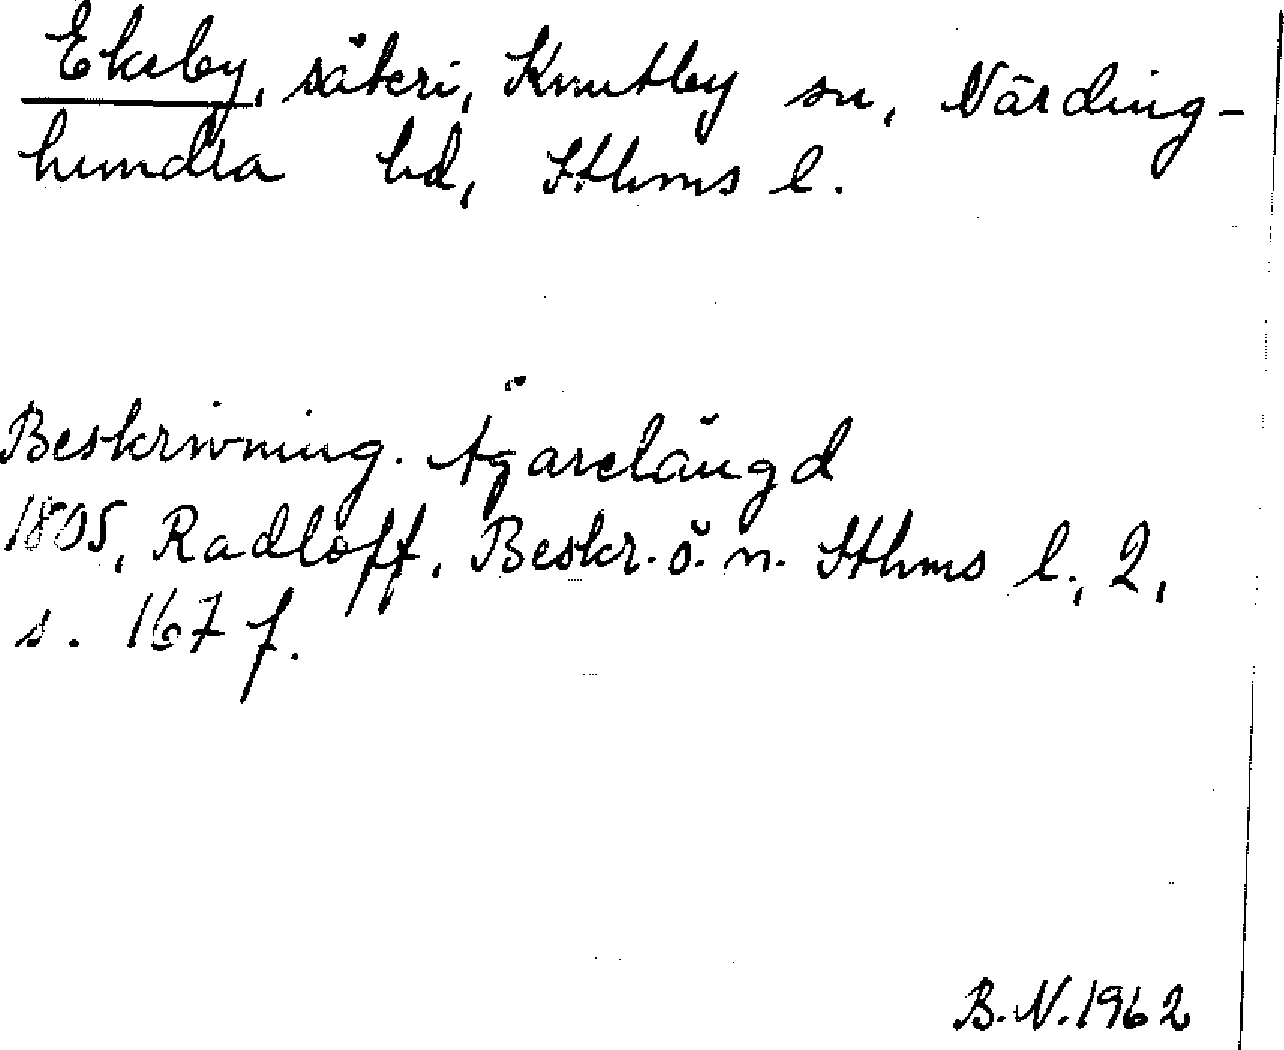 Ekeby, säteri, Knutby sn, Närding-
hundra hd, Sthms l.
Beskrivning. Ägarelängd
1805, Radloff, Beskr. ö. n. Sthms l., 2,
s. 167 f.
B.N. 1962